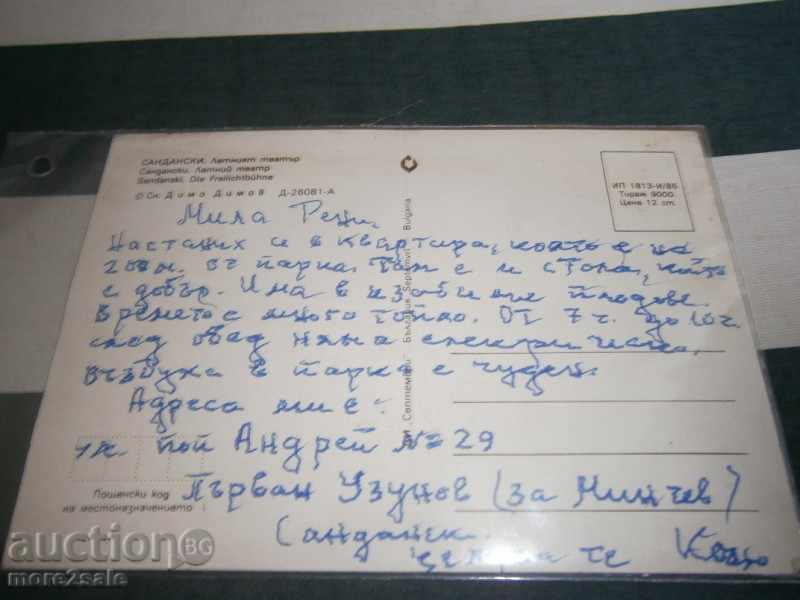 САНДАНСКИ. Летният театър
Сандански. Летний театр
Sandanski. Die Freilichtbühne
© Сн. Димо Димов Д-26081-А
ИП 1813-И/86
Тираж 9000
Цена 12 ст.
Мила Рени,
Настаних се в квартира, която е на
200 м. от парка. Там е и стола, който
е добър. Има в изобилие плодове.
Времето е много топло. От 7 ч. до 10 ч.
след обяд няма електричество.
Въздуха в парка е чуден.
Адреса ми е:
ул. поп Андрей № 29
Първан Узунов (за Минчев)
Сандански
целува те
Пощенски код
на местоназначението
ДП „Септември“ България Septemvri Bulgaria
auction BG
more2sale